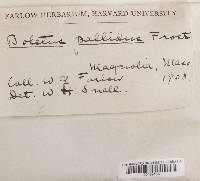 FARLOW HERBARIUM, HARVARD UNIVERSITY
Boletus pallidus Frost
Magnolia, Mass
Coll. W G Farlow 1903.
Det. W H Snell.